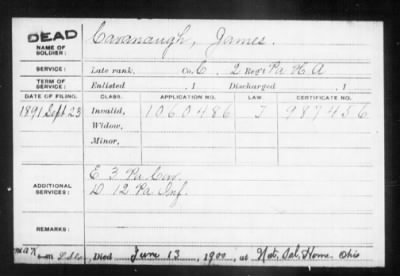 DEAD
NAME OF SOLDIER: Cavanaugh, James.
SERVICE: Late rank, Co. C. 2 Reg't Pa H A
TERM OF SERVICE: Enlisted , 1 Discharged , 1
DATE OF FILING. CLASS. APPLICATION NO. LAW. CERTIFICATE NO.
1891 Sept 23 Invalid, 1060486 J 987456
Widow,
Minor,
ADDITIONAL SERVICES: E 3 Pa Cav
D 12 Pa Inf.
REMARKS:
Died June 13, 1900, at Nat. Sol. Home. Ohio